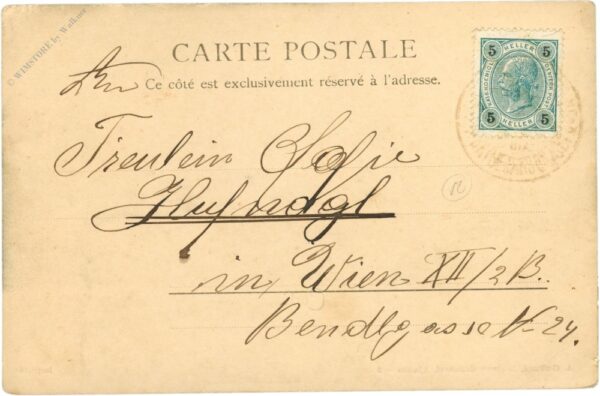 © WIMSTORE by Walkner
CARTE POSTALE
Ce côté est exclusivement réservé à l'adresse.
5 HELLER 5
5 HELLER 5
Fräulein Sofie
Hufnagl
in Wien XII/2 B.
Bendlgasse N 24.